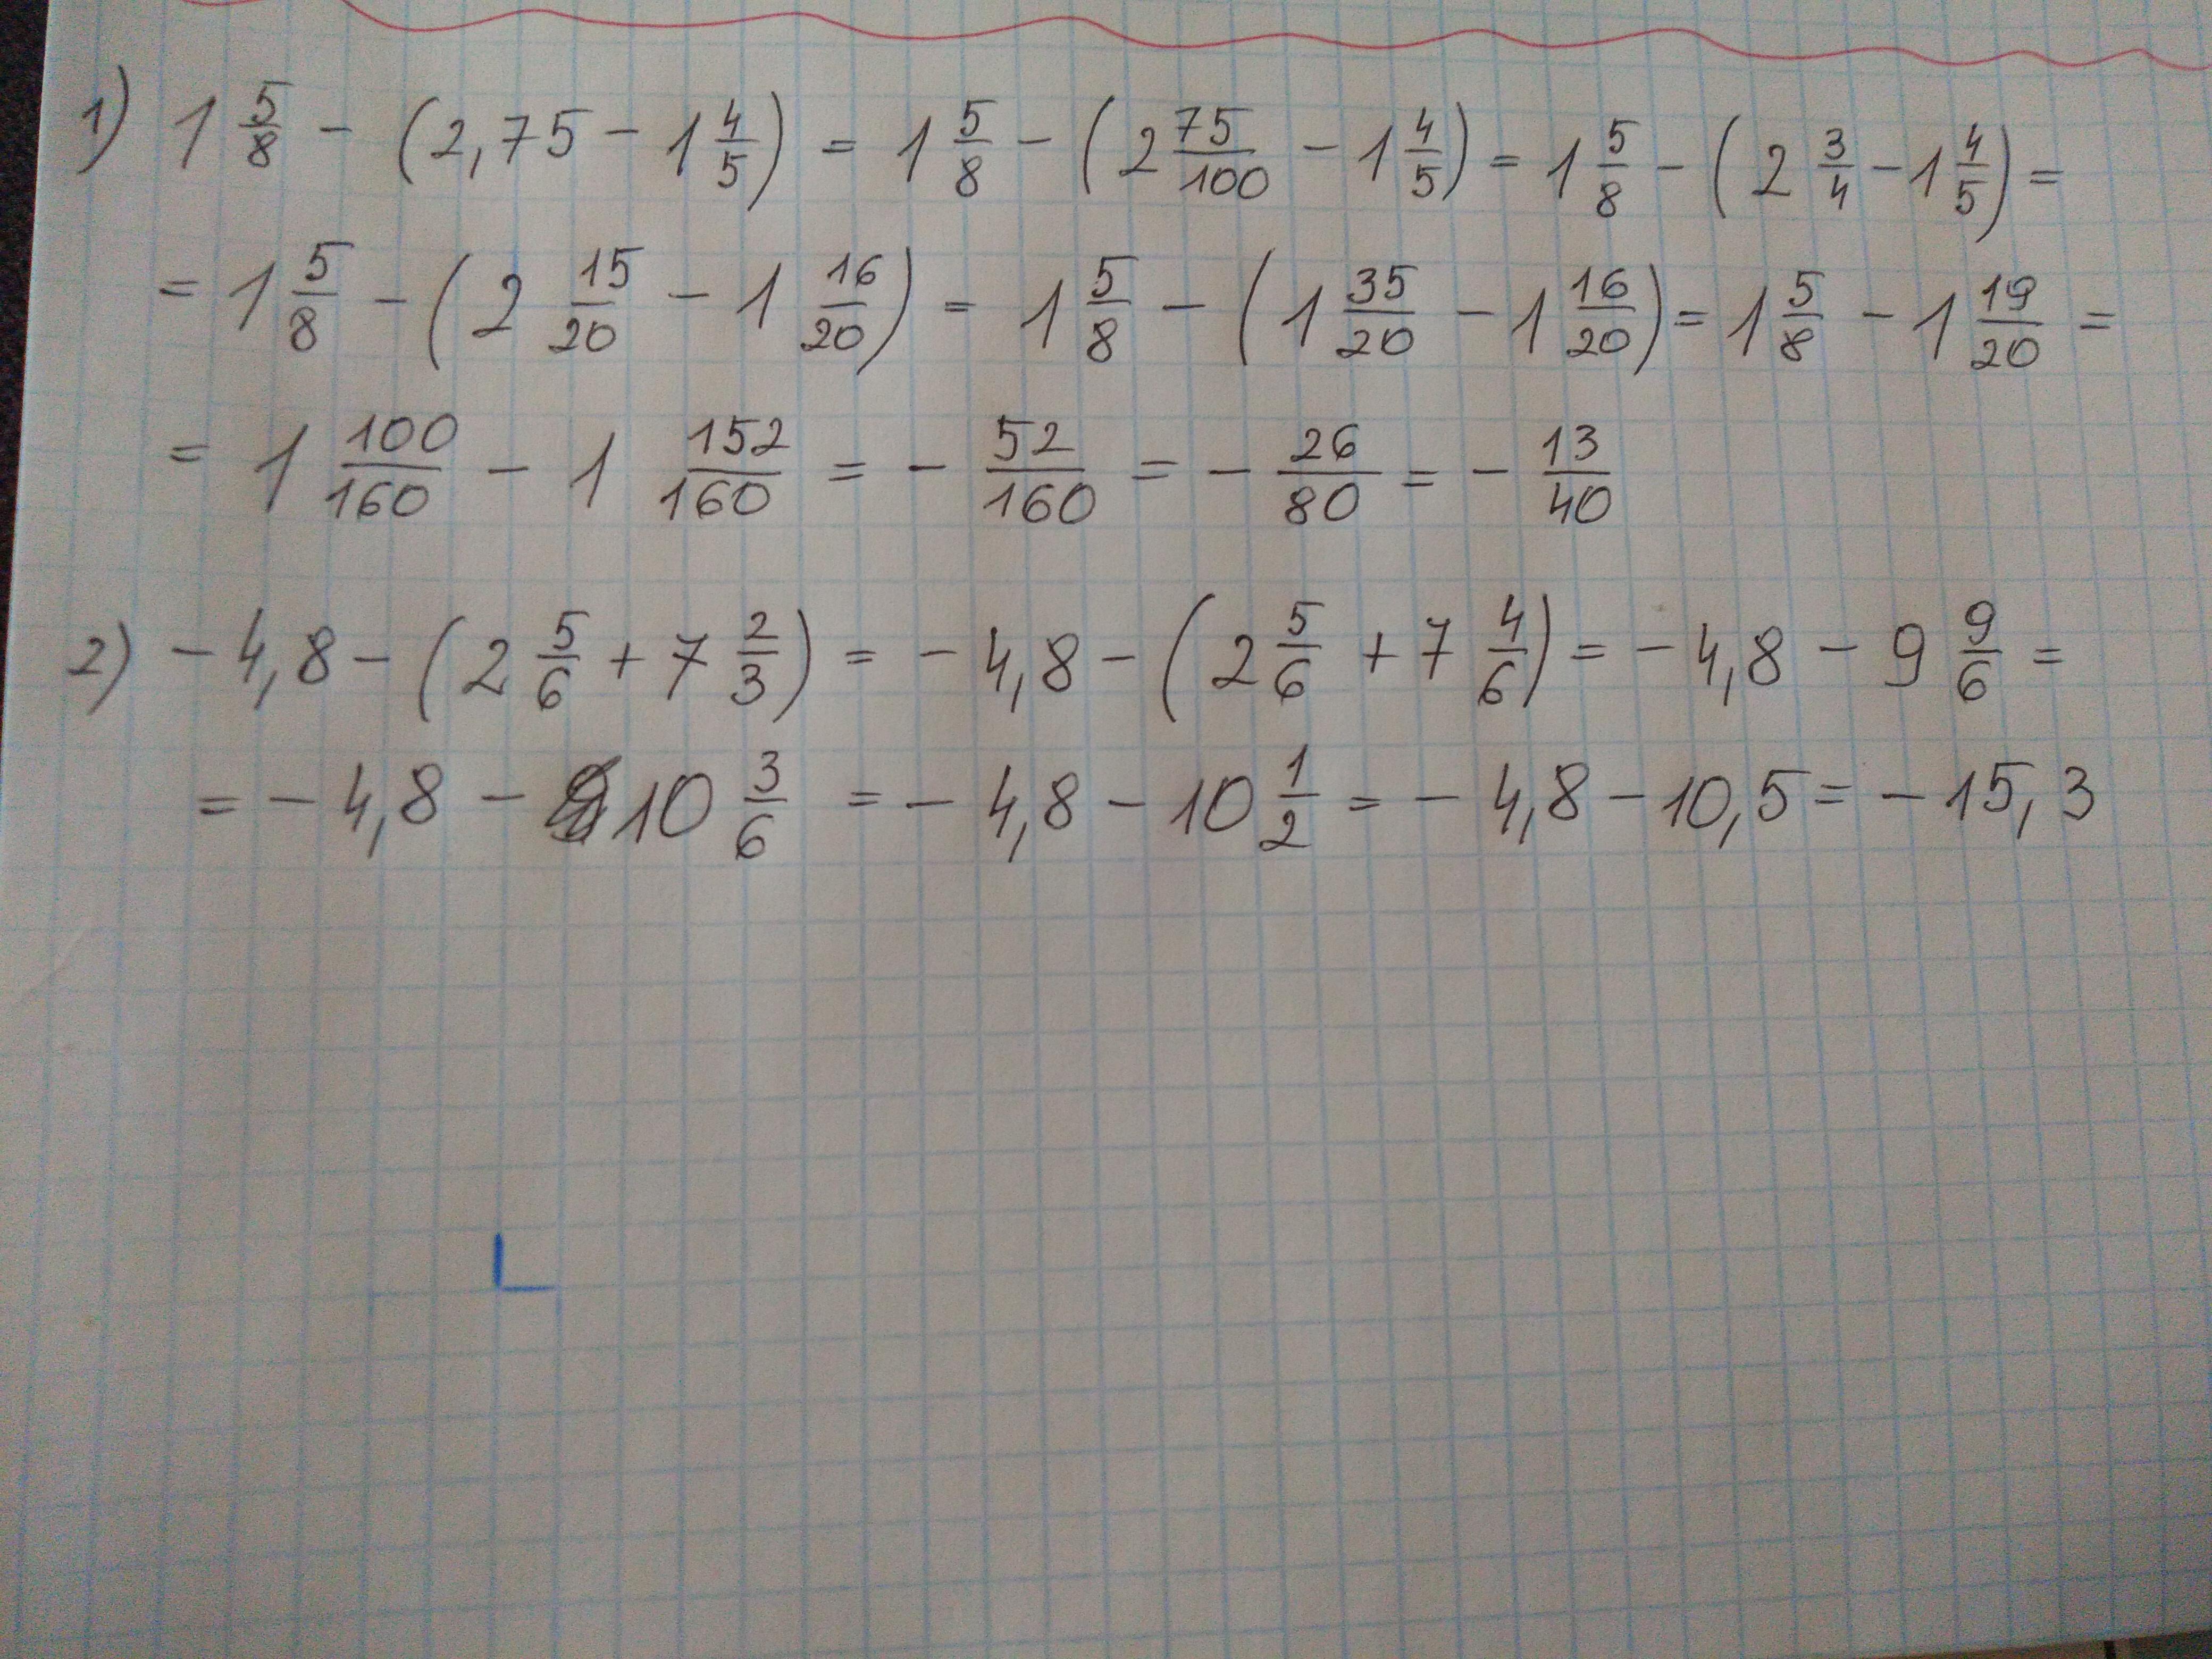 1) 1 5/8 - (2,75 - 1 4/5) = 1 5/8 - (2 75/100 - 1 4/5) = 1 5/8 - (2 3/4 - 1 4/5) =
= 1 5/8 - (2 15/20 - 1 16/20) = 1 5/8 - (1 35/20 - 1 16/20) = 1 5/8 - 1 19/20 =
= 1 100/160 - 1 152/160 = - 52/160 = - 26/80 = - 13/40
2) - 4,8 - (2 5/6 + 7 2/3) = - 4,8 - (2 5/6 + 7 4/6) = - 4,8 - 9 9/6 =
= - 4,8 - 10 3/6 = - 4,8 - 10 1/2 = - 4,8 - 10,5 = - 15,3